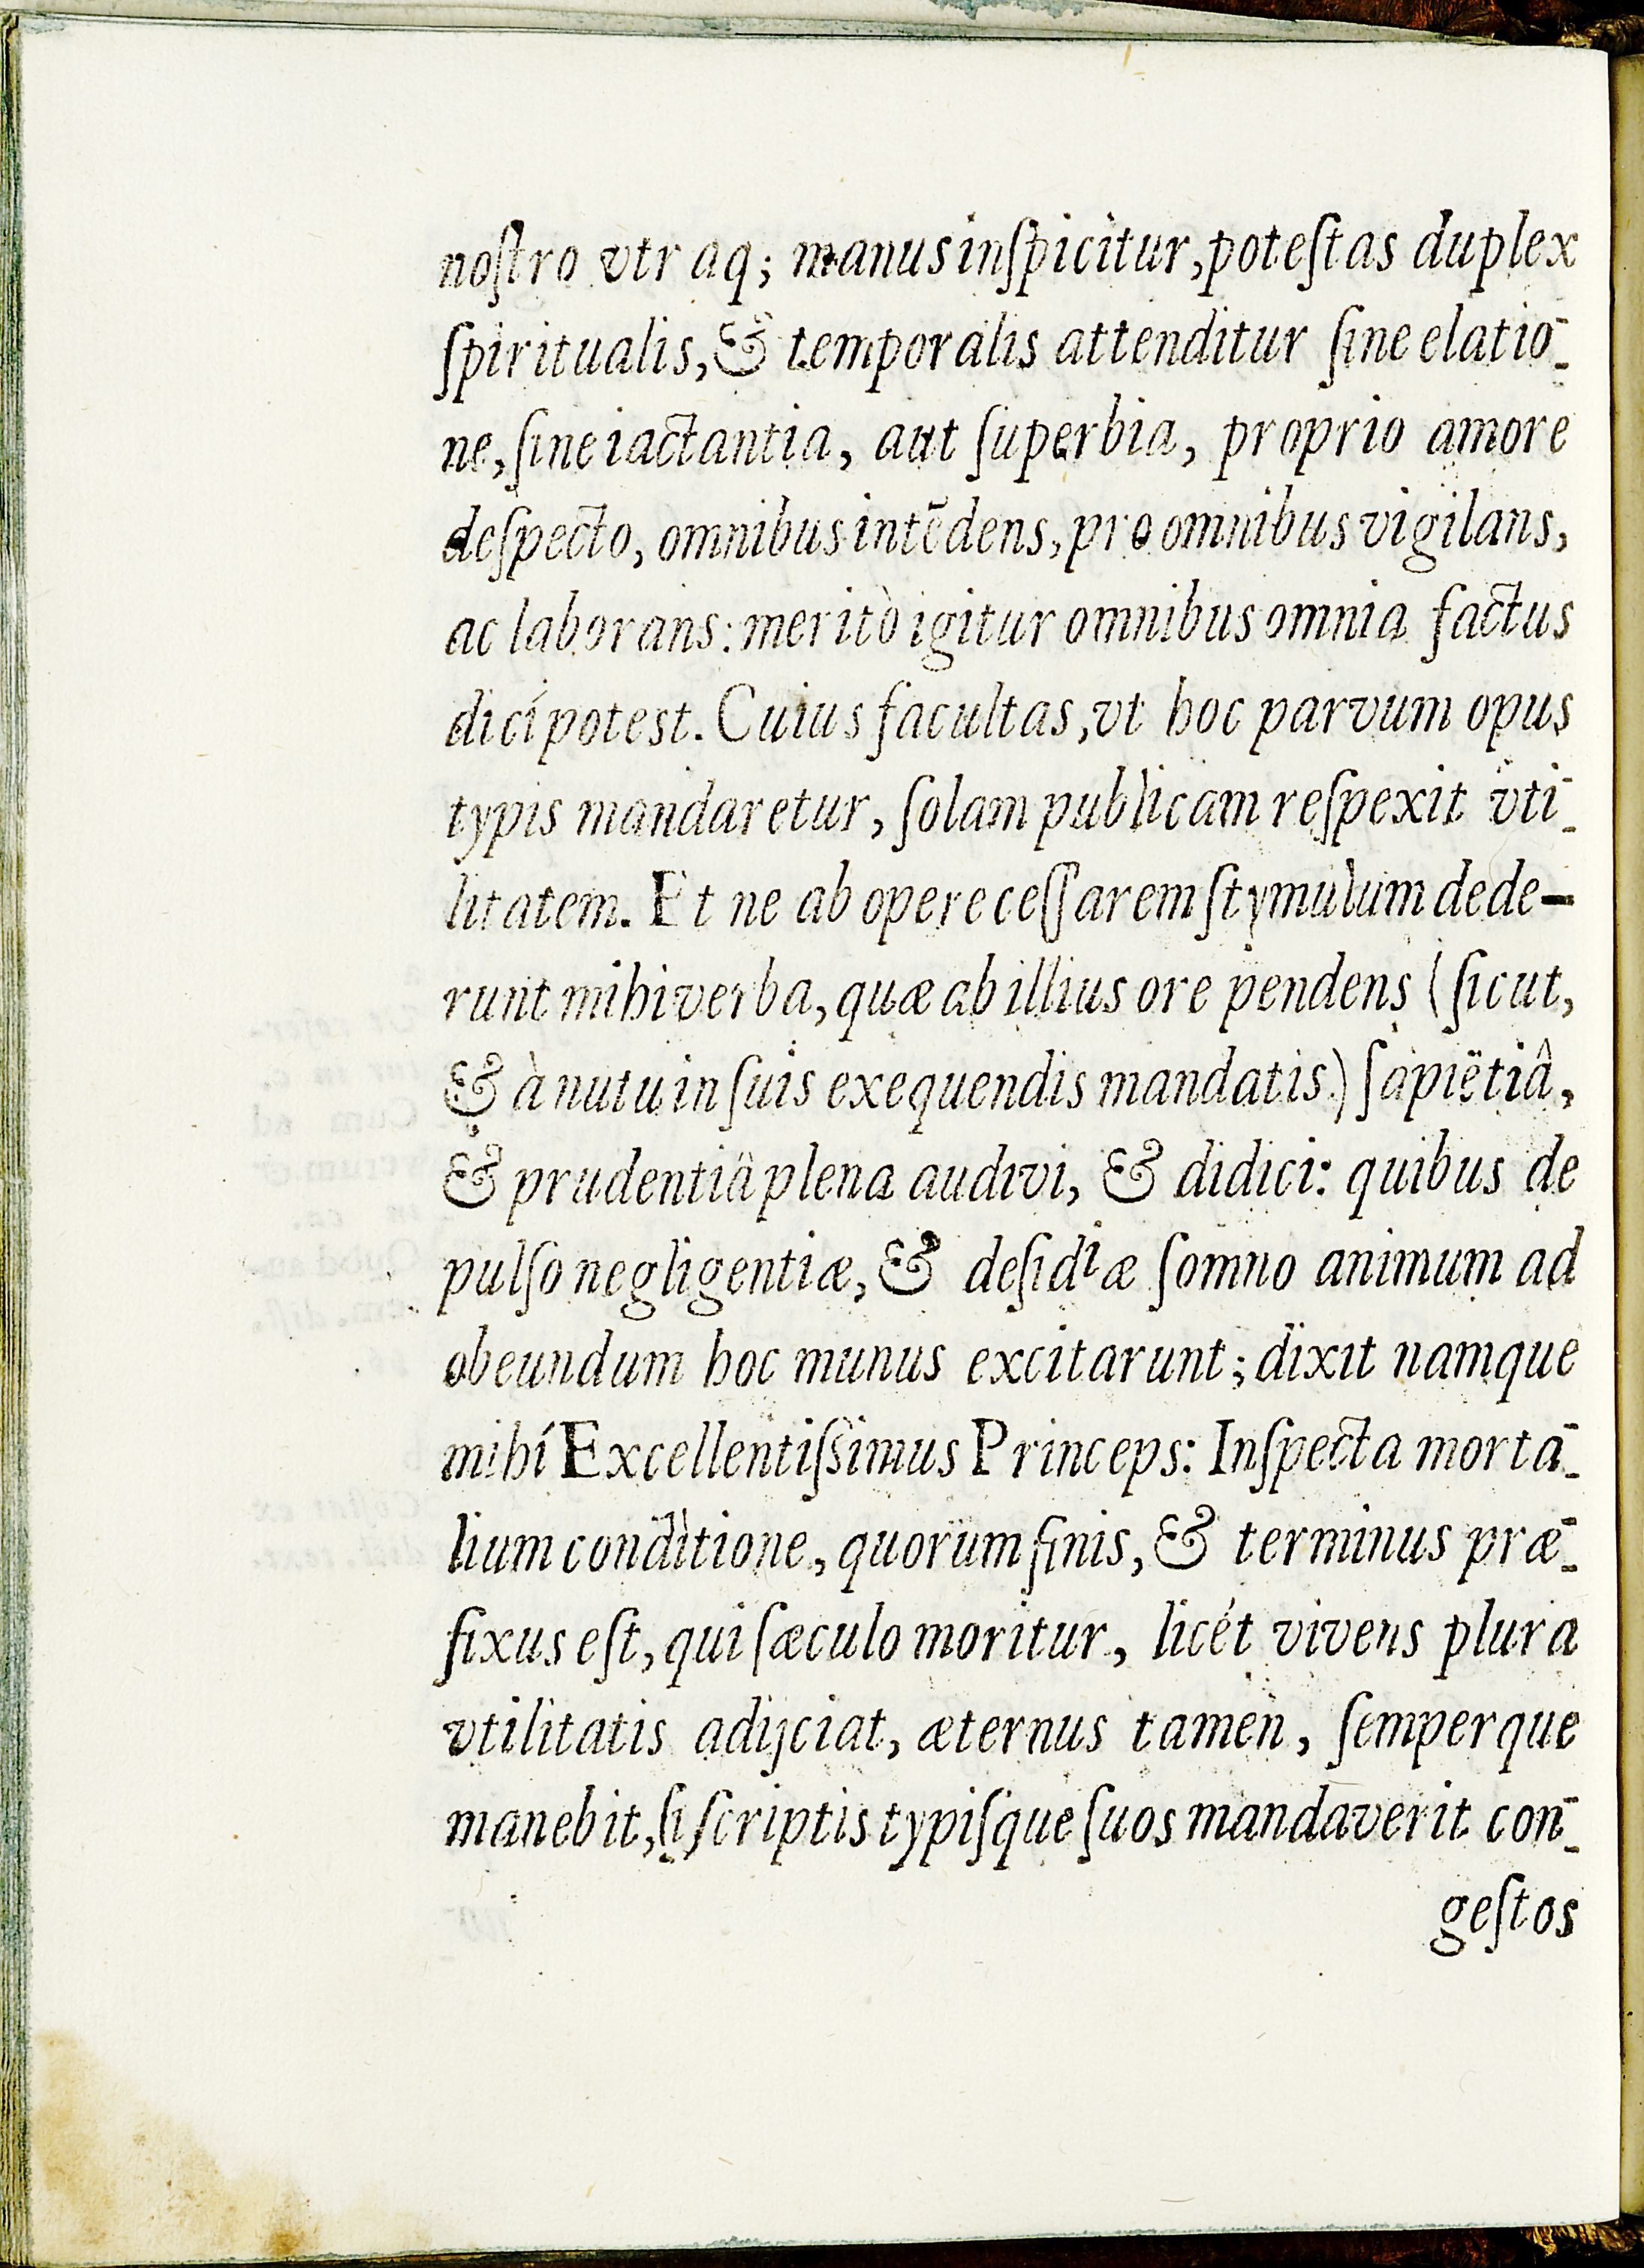 noſtro vtraq; manus inſpicitur, poteſtas duplex
ſpiritualis, & temporalis attenditur ſine elatio-
ne, ſine iactantia, aut ſuperbia, proprio amore
deſpecto, omnibus intēdens, pro omnibus vigilans,
ac laborans: meritò igitur omnibus omnia factus
dicí potest. Cuius facultas, vt hoc parvum opus
typis mandaretur, ſolam publicam reſpexit vti-
litatem. Et ne ab opere ceſſarem ſtymulum dede-
runt mihi verba, quæ ab illius ore pendens (ſicut,
& à nutu in ſuis exequendis mandatis) ſapiētiâ,
& prudentiâ plena audivi, & didici: quibus de
pulſo negligentiæ, & deſidiæ ſomno animum ad
obeundum hoc munus excitarunt; dixit namque
mihí Excellentiſsimus Princeps: Inſpecta morta-
lium conditione, quorum finis, & terminus præ-
fixus eſt, qui ſæculo moritur, licét vivens plura
vtilitatis adijciat, æternus tamen, ſemperque
manebit, ſi ſcriptis typiſque ſuos mandaverit con-
geſtos